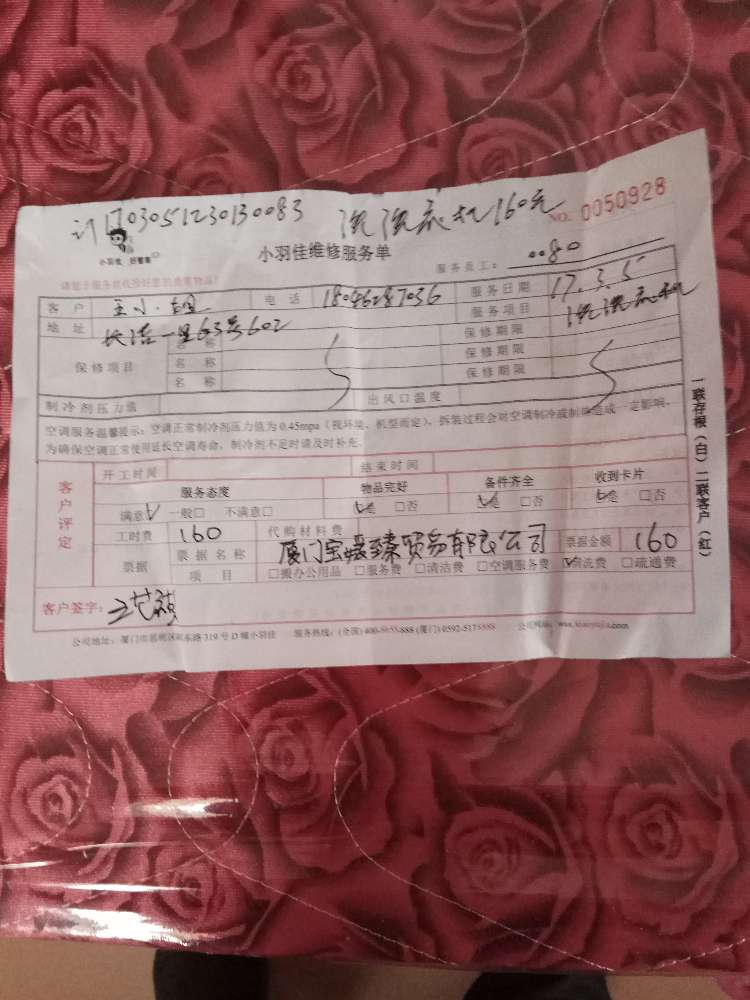 计1703051230130083 洗洗衣机160元
NO. 0050928
小羽佳 好管家
小羽佳维修服务单
服务员工: 0080
客户 王小姐 电话 18046287036 服务日期 17.3.5
地址 长浩一里63号602 服务项目 洗洗衣机
保修项目 名称 保修期限
名称 保修期限
名称 保修期限
制冷剂压力值 出风口温度
空调服务温馨提示：空调正常制冷剂压力值为0.45mpa（视环境、机型而定），拆装过程会对空调制冷或制热造成一定影响，
为确保空调正常使用延长空调寿命，制冷剂不足时请及时补充。
客户评定
开工时间 结束时间
服务态度 物品完好 备件齐全 收到卡片
满意√ 一般□ 不满意□ √是 □否 √是 □否 √是 □否
工时费 160 代购材料费
票据 票据名称 厦门宝媛臻贸易有限公司 票据金额 160
项目 □搬办公用品 □服务费 □清洁费 □空调服务费 √清洗费 □疏通费
客户签字：
一联存根（白）二联客户（红）